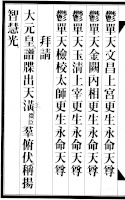 鬱單天文昌上宮更生永命天尊
鬱單天金闕內相更生永命天尊
鬱單天玉清上宰更生永命天尊
鬱單天檢校大師更生永命天尊
拜請
大元皇譜牒出天潢微臣羣俯伏稱揚
智慧光